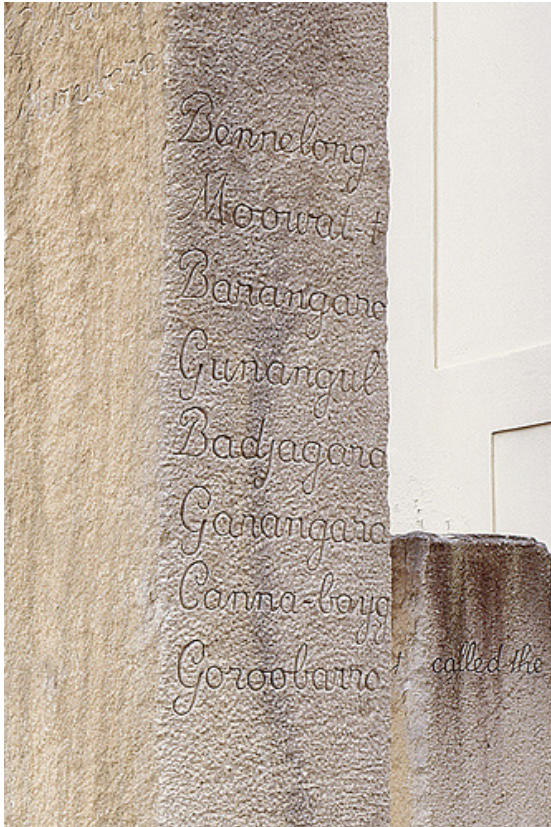 Bennelong
Moowat-t
Barangaro
Gunangul
Badjagara
Garangara
Canna-boyg
Goroobarro
called the